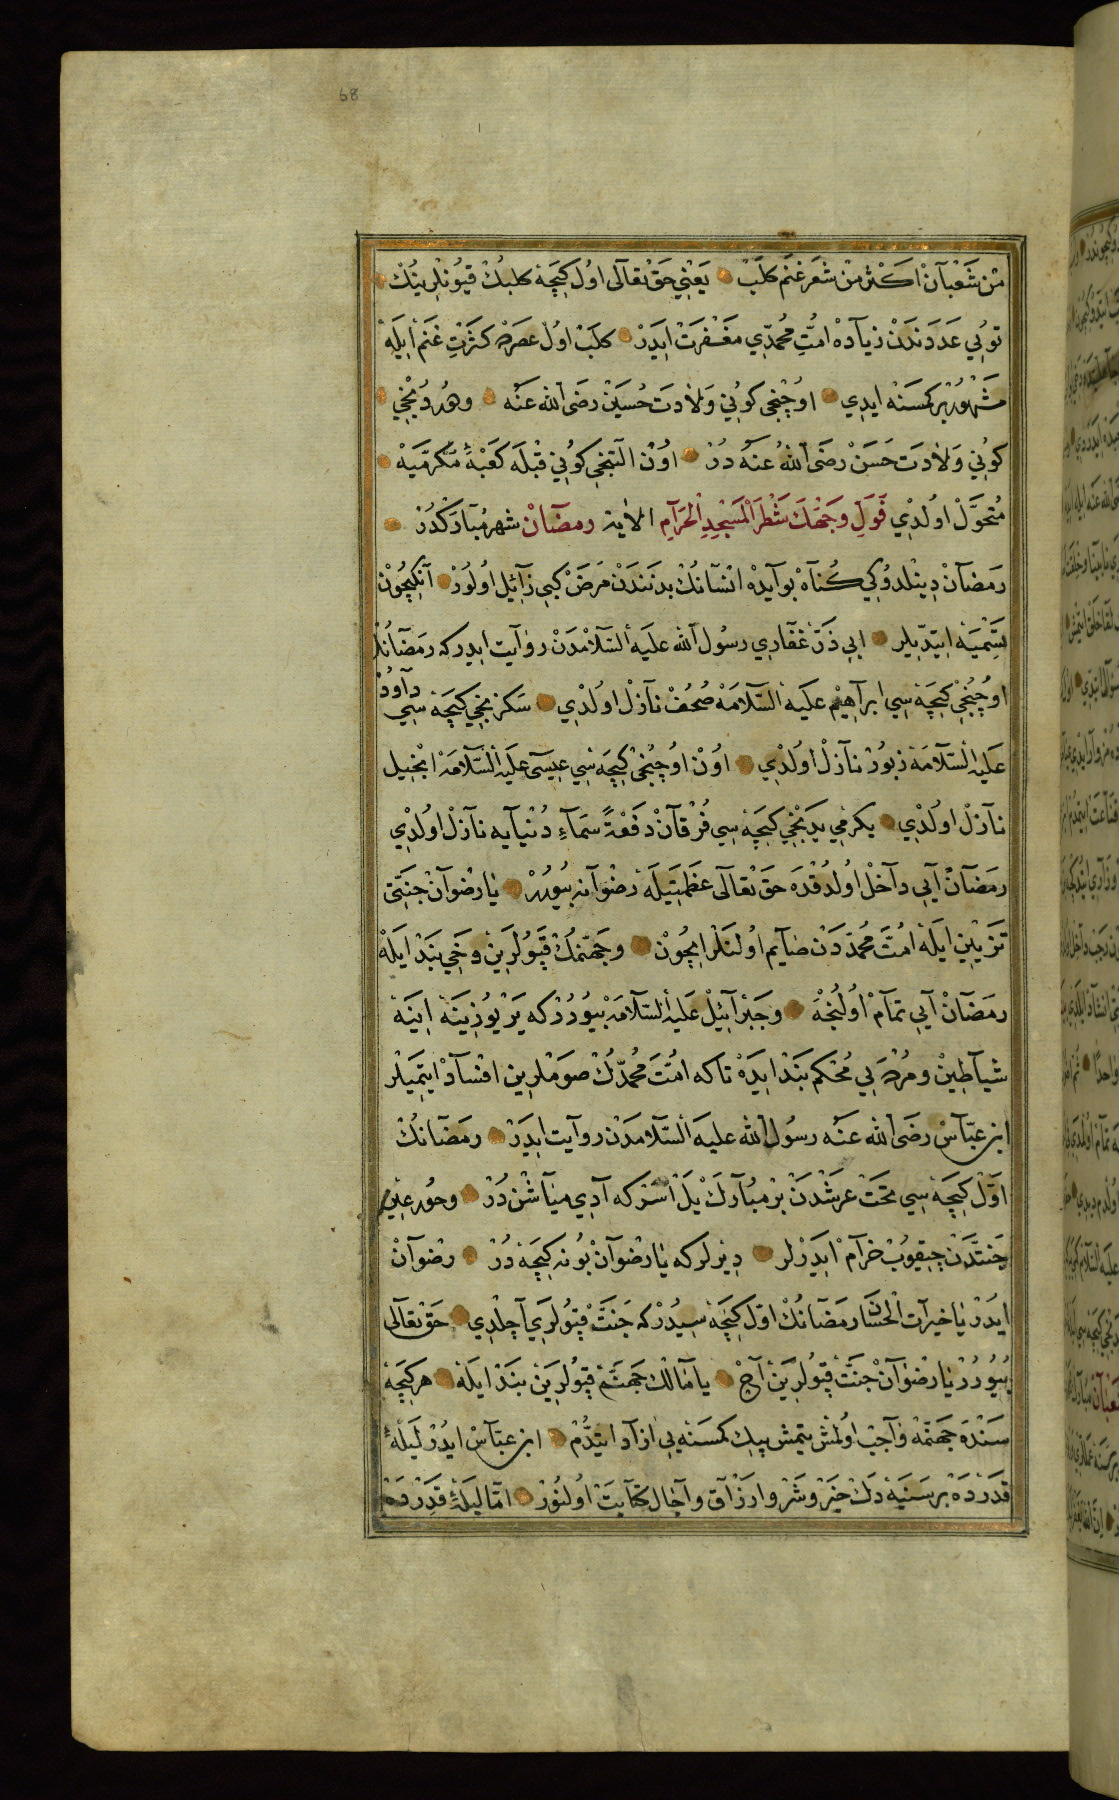 68
من شَعْبَانْ اَكْثَرْ مِنْ شَعَرِ غَنَمِ كَلْبْ يَعْنِي حَقْ تَعَالَى اُولْ كِيجَهْ كلبُكْ قيُونْلرينُكْ
تويي عَدَدَنْدَنْ زِيَادَهْ امُّتِ مُحمّدِي مَغْفِرَتْ اِيدَرْ كلَبْ اوُلْ عصرده كَثرَتِ غَنَمْ اِيلَهْ
مَشْهُورْ بِركمسَنَهْ ايدِي اوُچُنْجِي كوُنِي وَلَادَتِ حُسَيْنْ رَضَى اللهُ عَنْه وهر دُنجِي
كوُنِي وَلَادَتِ حَسَنْ رَضَى اللهُ عَنْهُ دُرْ اوُنْ التِنجِي كوُنِي قبْلَه كَعْبَهْ مُكَرَّميَهْ
مُتحَوَّلْ اوُلْدِي فَوَلِّ وَجْهَكَ شَطْرَ الْمَسْجِدِ الْحَرَامِ الْايَة رمضَانْ شهرِ مُبَارَكْدُرْ
رَمَضَانْ دِينلدُوكِي كُنَاهْ بوُ آيدَهْ انْسَانُكْ بدنندَنْ مَرَضْ كبِي زَائِل اوُلُورْ آنكِيچُونْ
تَسْمِيَهْ ايتدِيلر ابي ذَرِّ غفَارِي رسوُل الله عليَهْ السَّلَامْدَنْ رِوَايت ايدركه رمَضَانُكْ
اوُچُنْجِي كِيجَهْ سِي ابرَاهِيمْ عليَهْ السَّلَامَهْ صُحُفْ نَازلْ اوُلْدِي سَكزِنجِي كِيجَهْ سِي دَاوُدْ
عَليَهْ السَّلَامَهْ زَبُورْ نَازِلْ اوُلْدِي اوُنْ اوُچُنْجِي كِيجَه سِي عِيسَى عَليَهْ السَّلَامَهْ انْجِيل
نَازِلْ اوُلْدِي يكِرمِي يدِنجِي كِيجَهْ سِي فُرْقَانْ دَفْعَةً سَمَاءِ دُنْيَايه نَازِلْ اوُلْدِي
رمَضَانْ آيِي دَاخلْ اوُلدُقْدَه حَقْ تعَالَى عَظَمَتيلَهْ رضْوَانه بُيُورُرْ يَا رضْوَانْ جَنَّتِي
تَزْيِينْ ايلَهْ امُتِّ مُحمَّدْدَنْ صَايِم اوُلَنلَرْ ايچُونْ وجهنمُكْ قپُولَرِينْ دَخِي بَنْد ايلَهْ
رمَضَانْ آيِي تمَامْ اوُلُنْجَهْ وجَبْرَائيلْ عَليَهْ السَّلَامَهْ بُيُورُرْكه يَرْ يُوزِينَهْ اِينَهْ
شيَاطِينْ ومَرَدَه يِي مُحْكَم بَنْد ايدَهْ تاكه امُّتِ مُحمَّدُكْ صَومْلرِين افْسَادْ ايتمِيلَر
ابن عبَّاسْ رضَى الله عَنْه رسُولُ الله عليَه السَّلَامدَنْ رِوَايَت ايدَرْ رمَضَانُكْ
اوَّلْ كِيجَهْ سِي تحتِ عرشدَنْ بِرْ مُبَارَكْ يَلْ اسَرْكه آدِي ميَاشْنْ دُرْ وحُورِ عِينْ
جَنَّتدَنْ چيقُوبْ خرَامْ ايدَرْلَر دِيرلركه يَا رِضْوَانْ بُو نه كِيجَهْ دُرْ رضْوَانْ
ايدُرْ يَا خيرَاتِ الْحِسَان رمَضَانُكْ اوَّلْ كِيجَهْ سِيدُرْكه جَنَّتْ قپُولَرِي آچلْدِي حَقْ تعَالَى
بُيُورُرْ يَا رضْوَانْ جَنَّتْ قپُولَرِينْ آچْ يا مَالكْ جَهنَّمْ قپُولَرِينْ بَنْد ايلَهْ هر كِيجَهْ
سَنْدَه جهنَّمَهْ وَاجبْ اوُلمشْ يتمش بيك كمسَنه يِي ازَاد ايتدُمْ ابن عبَّاسْ ايدُرْ لَيلَهْ
قدَرْدَهْ بِرْ سَنيَهْ دَكْ خَيْر وشَرْ وارْزَاق وآجَالْ كتَابتْ اوُلنُورْ امَّا ليلَهْ قدِرْدَهْ